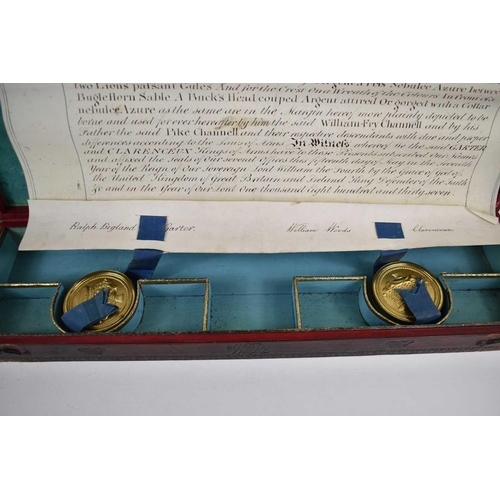 two Lions passant Gules And for the Crest On a Wreath of the Colours In front of a
Bugle Horn Sable A Buck's Head couped Argent attired Or gorged with a Collar
nebulee Azure as the same are in the Margin hereof more plainly depicted to be
borne and used forever hereafter by him the said William Fry Channell and by his
Father the said Pike Channell and their respective descendants with due and proper
differences according to the Laws of Arms In Witness whereof We the said GARTER
and CLARENCEUX Kings of Arms have to these Presents subscribed our Names
and affixed the Seals of Our several Offices this day of May in the seventh
Year of the Reign of Our Sovereign Lord William the Fourth by the Grace of God of
the United Kingdom of Great Britain and Ireland King Defender of the Faith
&c and in the Year of Our Lord One thousand eight hundred and thirty seven.
Ralph Bigland Garter. William Woods Clarenceux